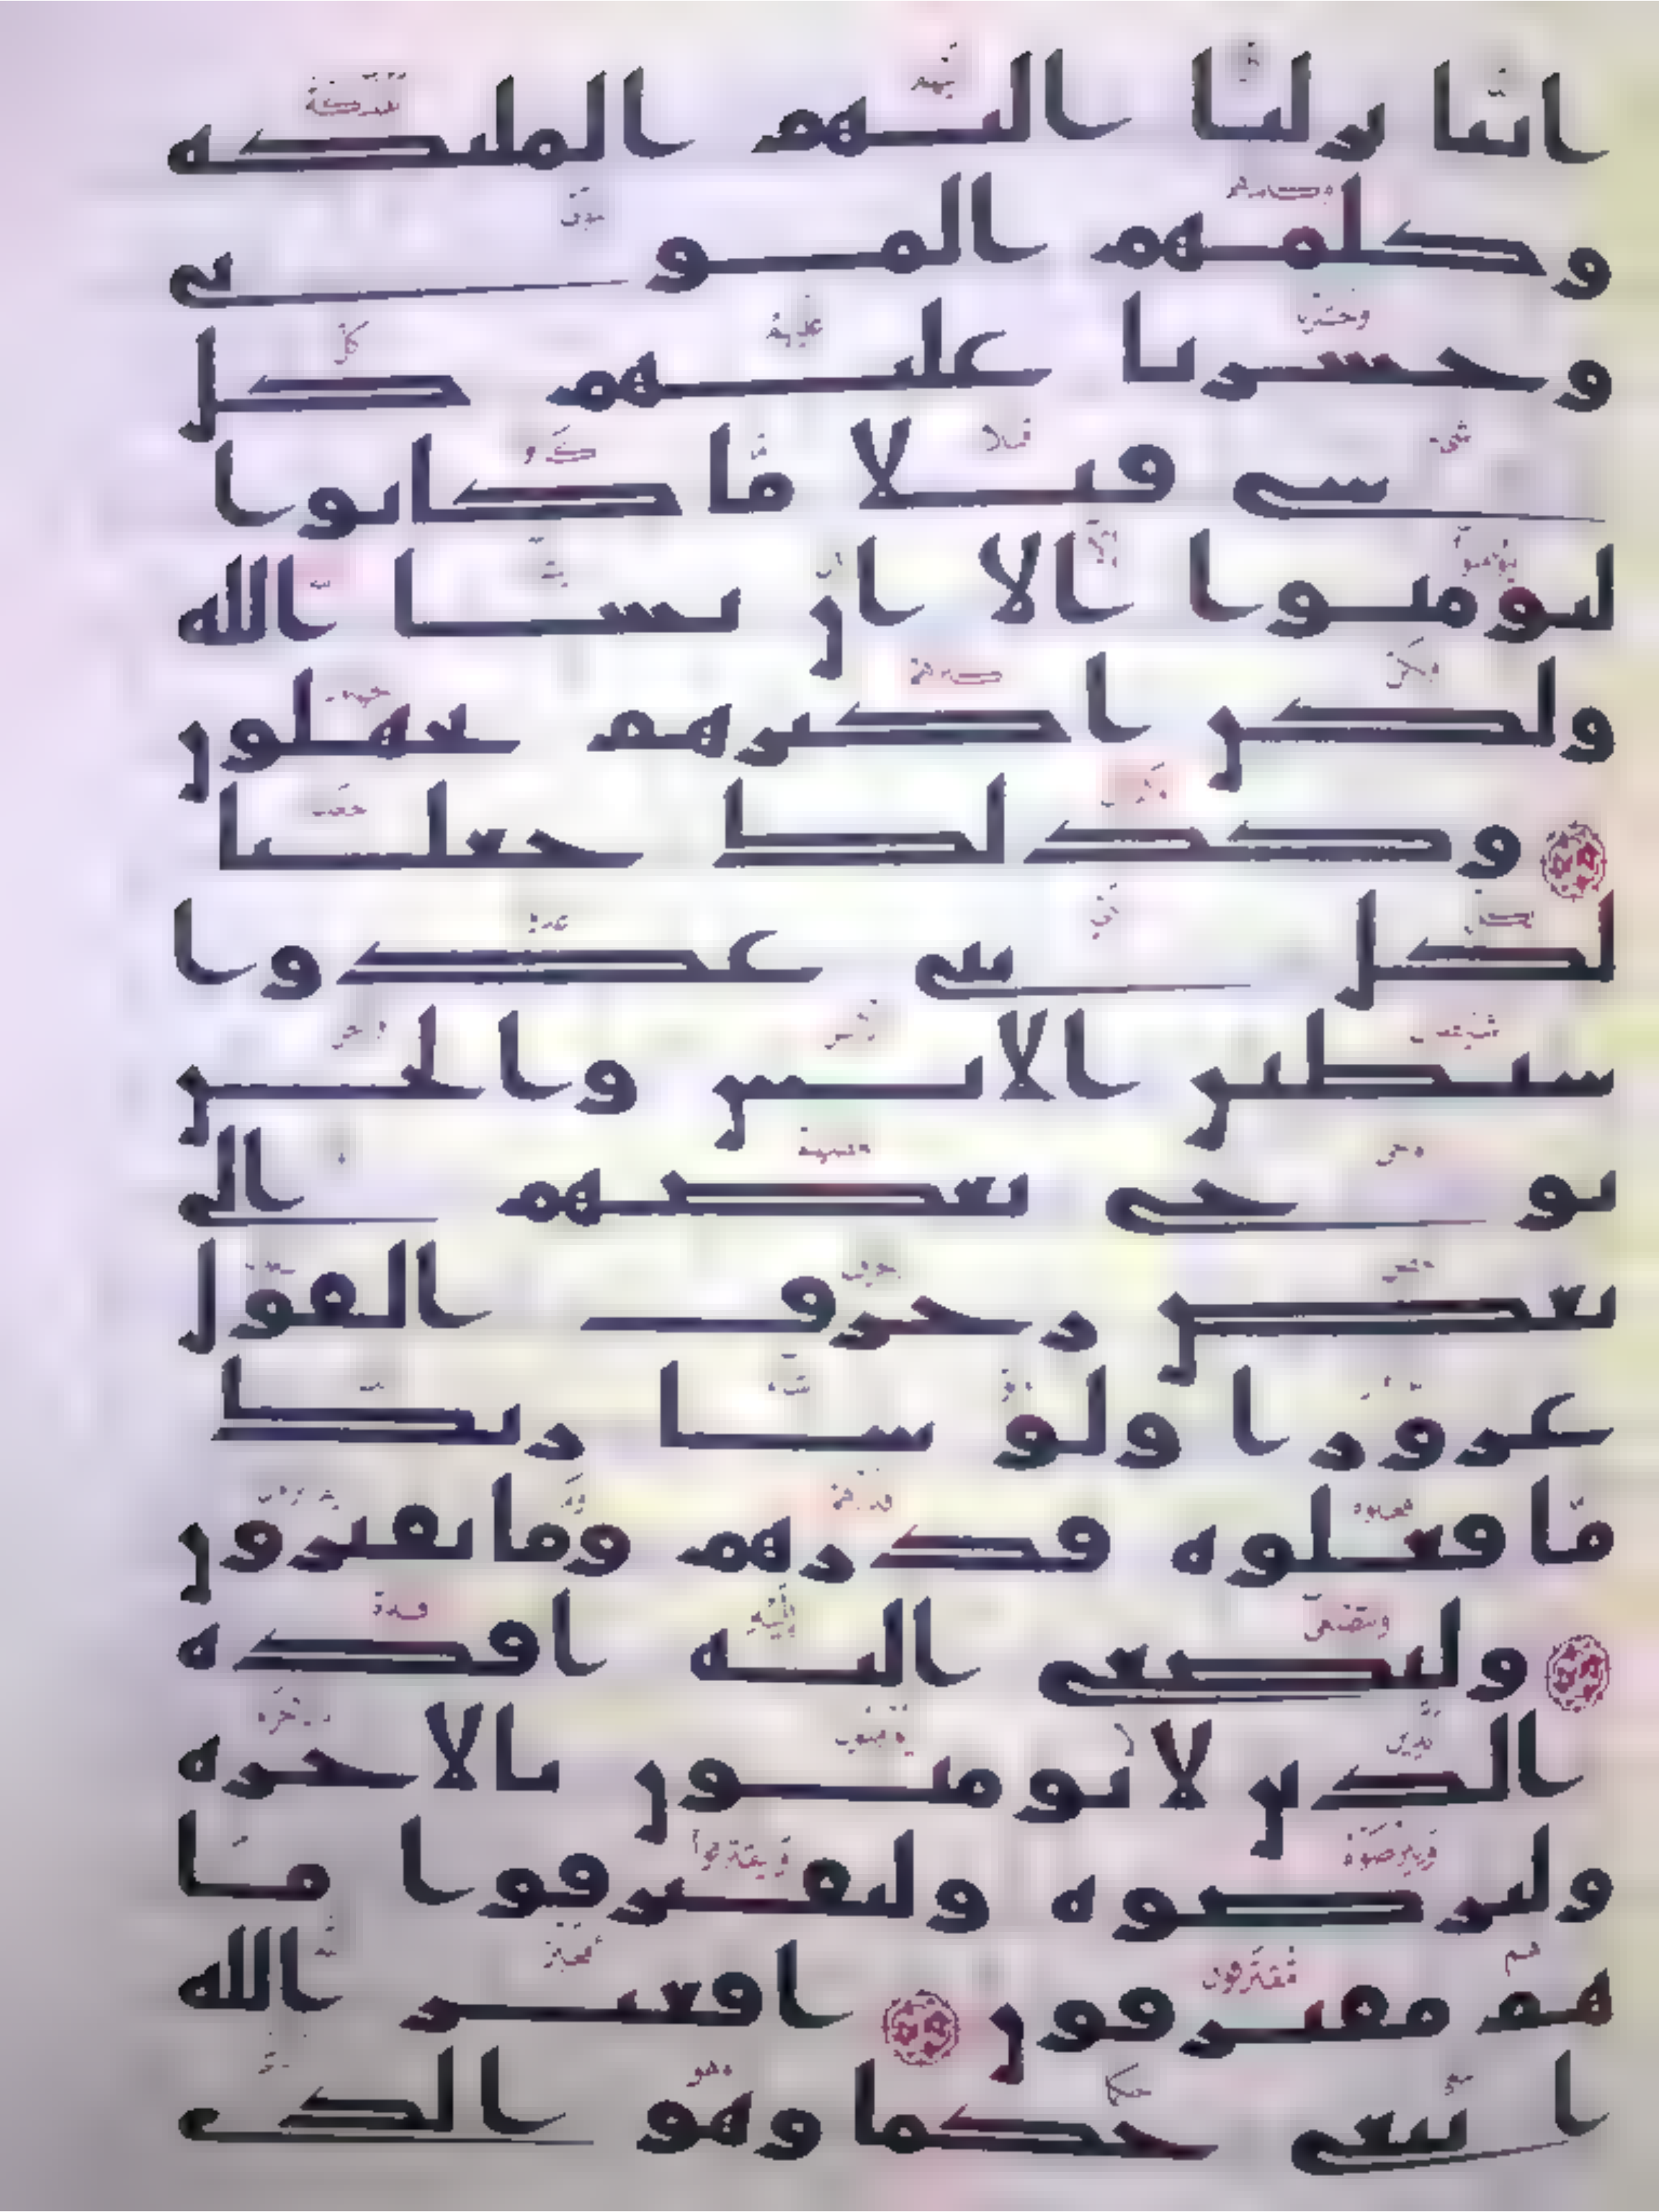 اننا نزلنا اليهم الملئكة
وكلمهم الموتى
وحشرنا عليهم كل
شى قبلا ما كانوا
ليومنوا الا ان يشا الله
ولكن اكثرهم يجهلون
وكذلك جعلنا
لكل نبى عدوا
شيطين الانس والجن
يوحى بعضهم الى
بعض زخرف القول
غرورا ولو شا ربك
ما فعلوه فذرهم وما يفترون
ولتصغى اليه افئدة
الذين لا يومنون بالاخرة
وليرضوه وليقترفوا ما
هم مقترفون افغير الله
ابتغى حكما وهو الذى